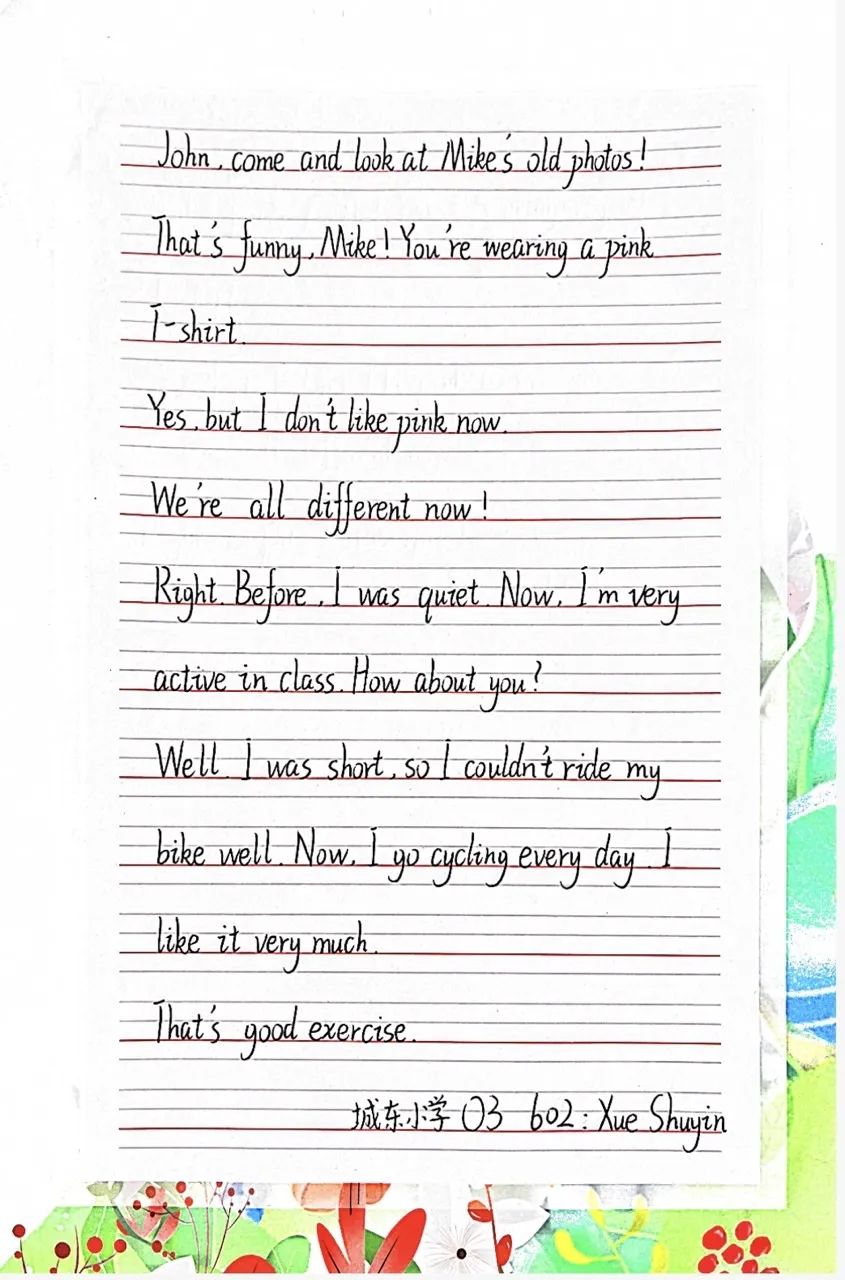 John, come and look at Mike's old photos!
That's funny, Mike! You're wearing a pink
T-shirt.
Yes, but I don't like pink now.
We're all different now!
Right. Before, I was quiet. Now, I'm very
active in class. How about you?
Well. I was short, so I couldn't ride my
bike well. Now, I go cycling every day. I
like it very much.
That's good exercise.
城东小学 03 602: Xue Shuyin